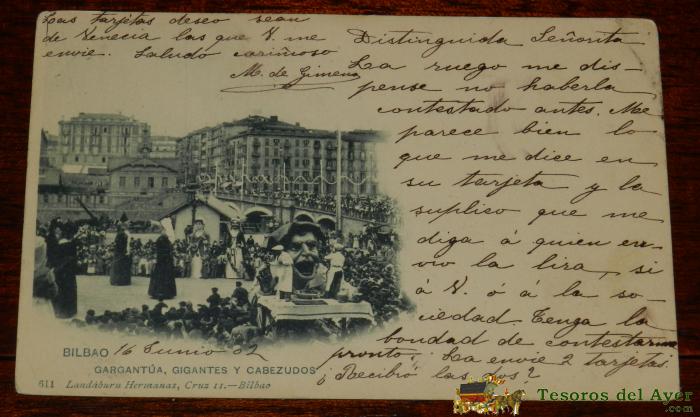 Las tarjetas deseo sean
de Venecia las que V. me
envie. Saludo cariñoso
M. de Gimeno
Distinguida Señorita
La ruego me dis-
pense no haberla
contestado antes. Me
parece bien lo
que me dice en
su tarjeta y la
suplico que me
diga á quien en-
vío la lira, si
á V. ó á la so-
ciedad. Tenga la
bondad de contestarme
pronto. La envie 2 tarjetas.
¿Recibió las dos?
BILBAO 16 Junio 02
GARGANTÚA, GIGANTES Y CABEZUDOS
611 Landáburu Hermanas, Cruz 11.—Bilbao
Tesoros del Ayer
.com